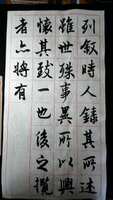 列叙時人錄其所述
雖世殊事異所以興
懷其致一也後之攬
者亦將有